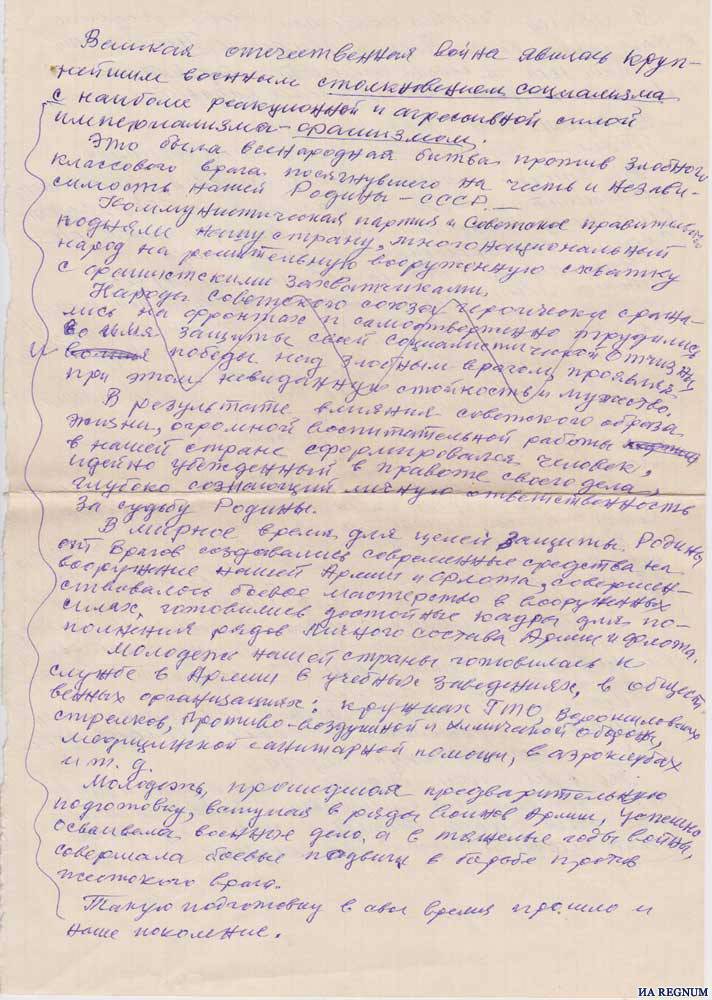 Великая отечественная война явилась круп-
нейшим военным столкновением социализма
с наиболе реакционной и агрессивной силой
империализма - фашизмом.
Это была всенародная битва против злобного
классового врага посягнувшего на честь и незави-
симость нашей Родины - СССР.
Коммунистическая партия и Советское правительство
подняли нашу страну, многонациональный
народ на решительную вооруженную схватку
с фашистскими захватчиками.
Народы Советского союза героически сража-
лись на фронтах и самоотверженно трудились
во имя защиты своей социалистической отчизны,
победы над злобным врагом, проявляя
при этом невиданную стойкость и мужество.
В результате влияния советского образа
жизни, огромной воспитательной работы
в нашей стране сформировался человек,
идейно убежденный в правоте своего дела,
глубоко сознающий личную ответственность
за судьбу Родины.
В мирное время для целей защиты Родины
от врагов создавались современные средства на
вооружение нашей Армии и флота, совершен-
ствовалось боевое мастерство в вооруженных
силах, готовились достойные кадры для по-
полнения рядов личного состава Армии и флота.
Молодежь нашей страны готовилась к
службе в Армии в учебных заведениях, в общест-
венных организациях: кружках ГТО Ворошиловских
стрелков, Противо-воздушной и химической обороны,
медицинской санитарной помощи, в аэроклубах
и т. д.
Молодежь, прошедшая предварительную
подготовку, вступая в ряды воинов Армии, успешно
осваивала военное дело, а в тяжелые годы войны,
совершала боевые подвиги в борьбе против
жестокого врага.
Такую подготовку в свое время прошло и
наше поколение.
ИА REGNUM